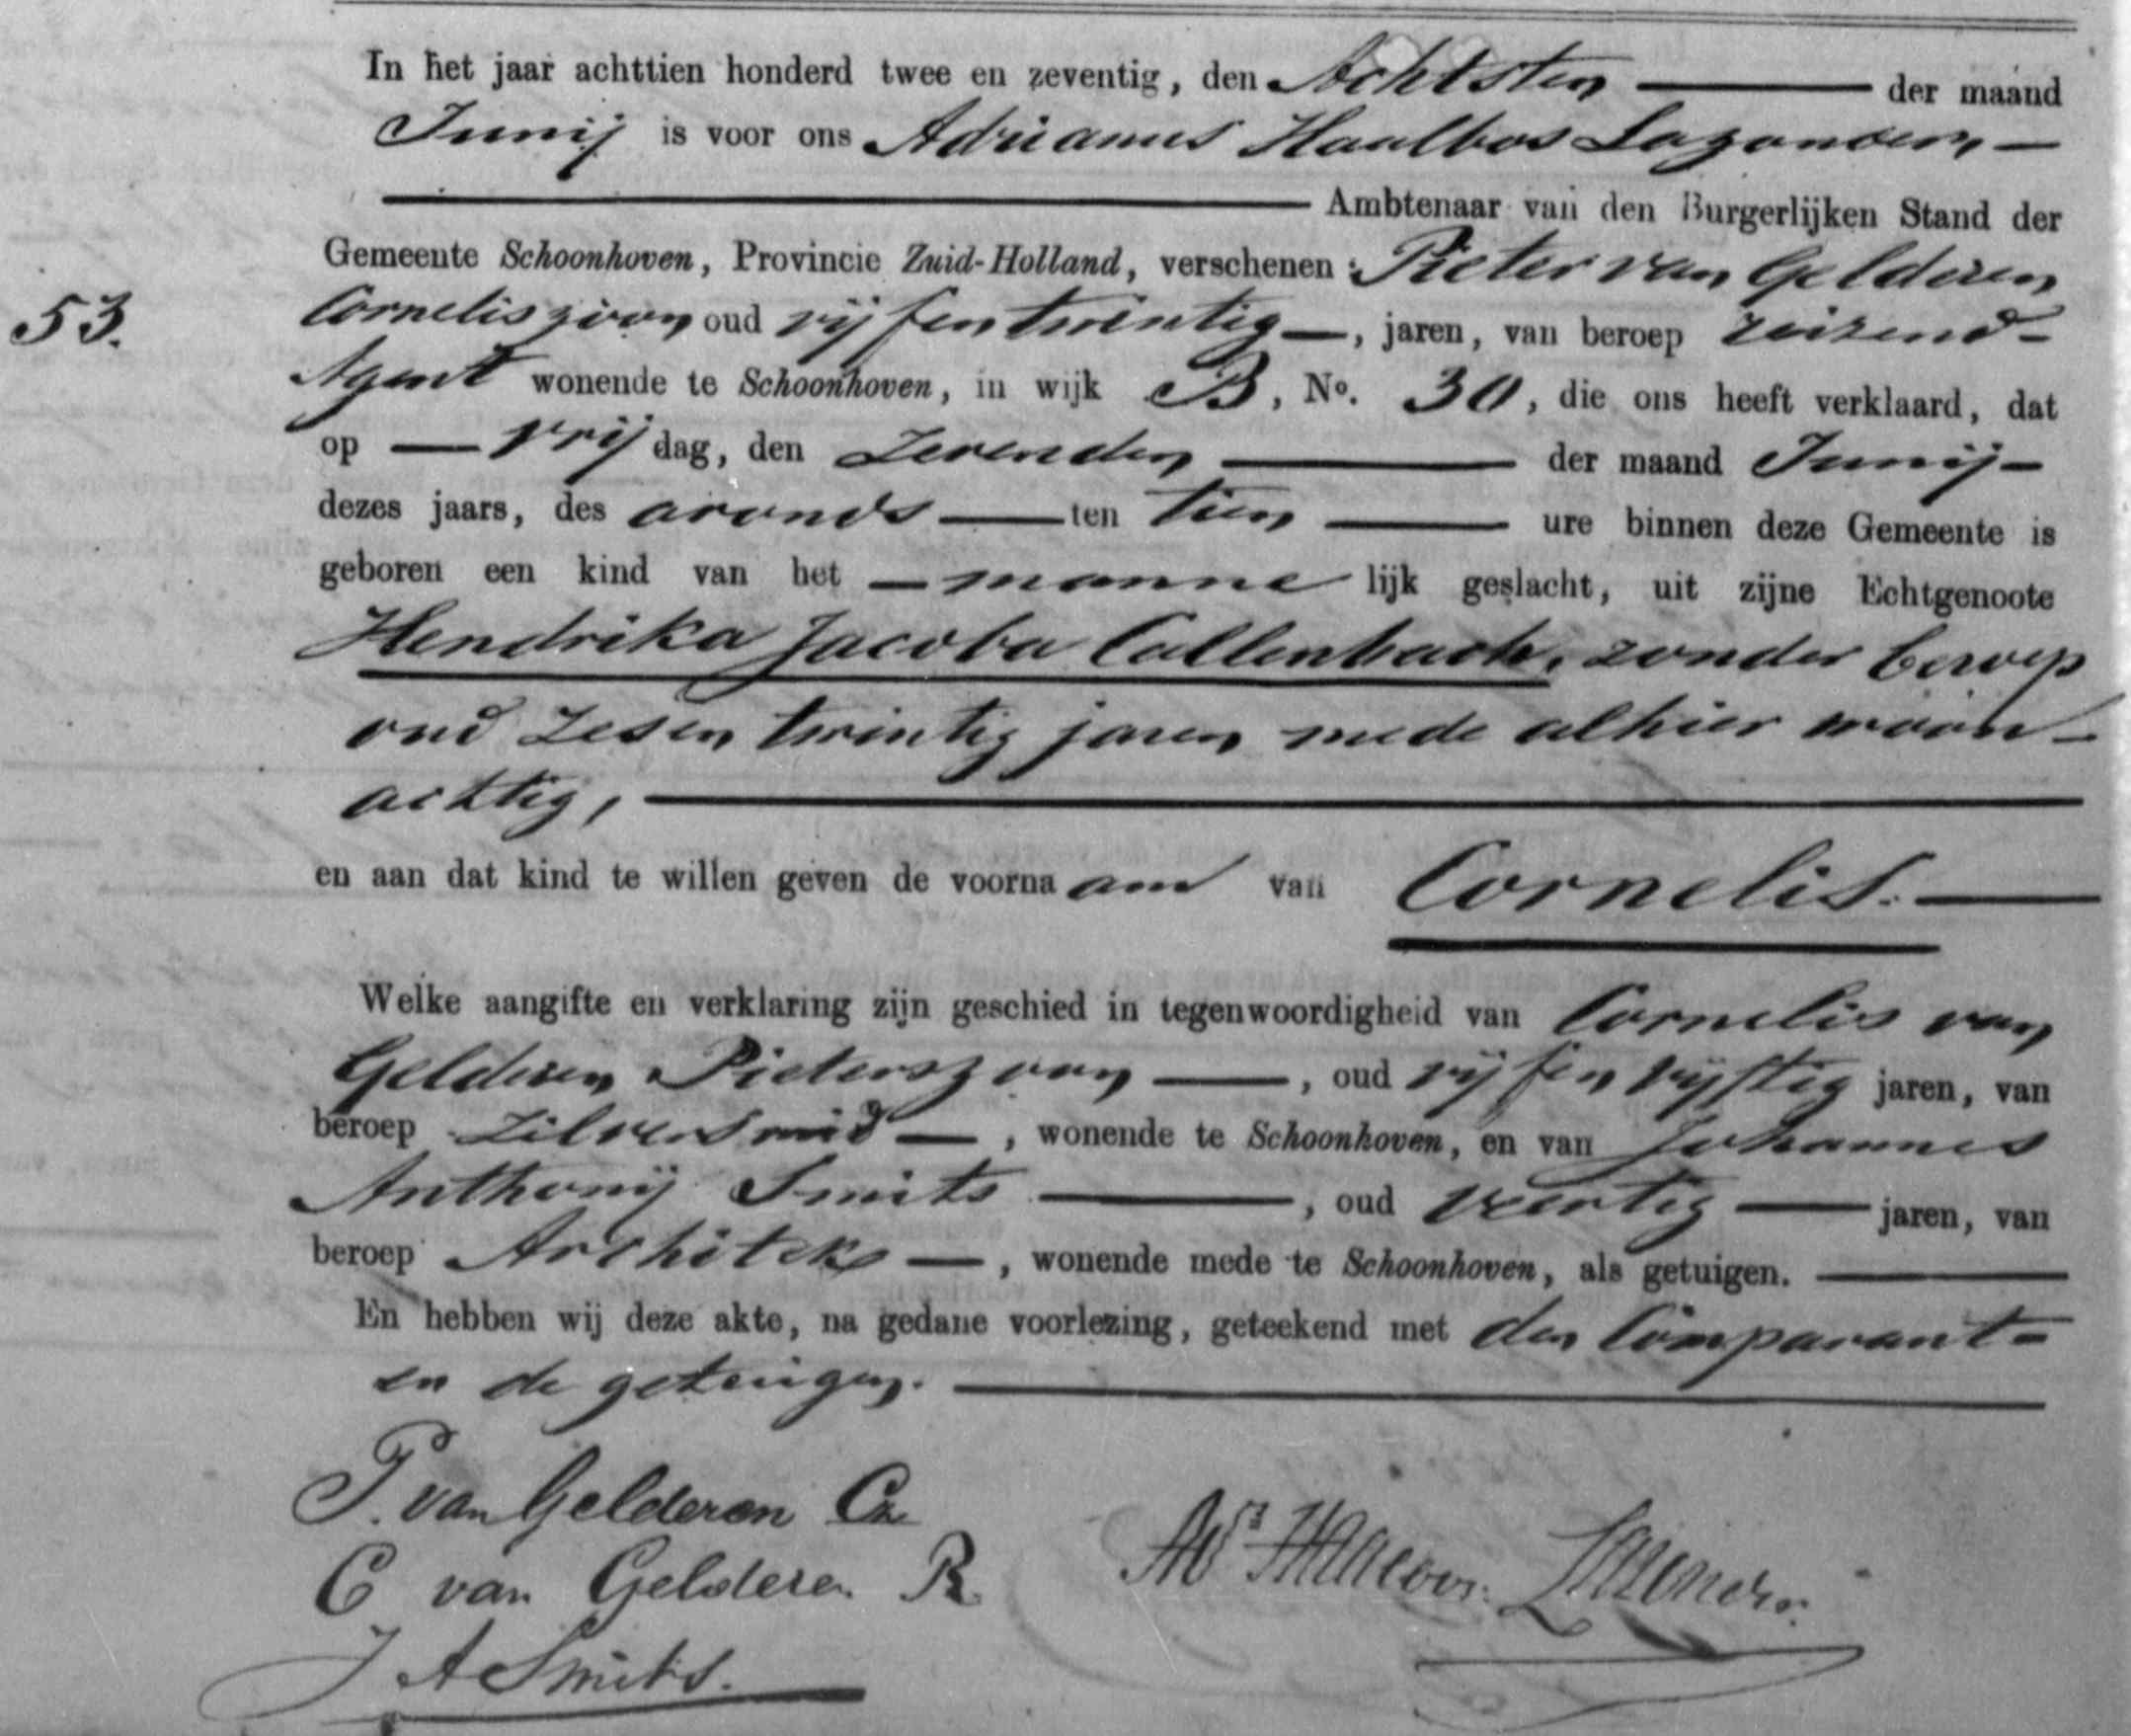 In het jaar achttien honderd twee en zeventig, den Achtsten der maand
Junij is voor ons Adrianus Haalbos Lazonder,
Ambtenaar van den Burgerlijken Stand der
Gemeente Schoonhoven, Provincie Zuid-Holland, verschenen: Pieter van Gelderen
53.
Corneliszoon oud vijfentwintig, jaren, van beroep reizend-
Agent wonende te Schoonhoven, in wijk B, No. 30, die ons heeft verklaard, dat
op vrijdag, den Zevenden der maand Junij
dezes jaars, des avonds ten tien ure binnen deze Gemeente is
geboren een kind van het mannelijk geslacht, uit zijne Echtgenoote
Hendrika Jacoba Callenbach, zonder beroep
oud zesen twintig jaren mede alhier woon-
achtig,
en aan dat kind te willen geven de voornaam van Cornelis.
Welke aangifte en verklaring zijn geschied in tegenwoordigheid van Cornelis van
Gelderen Pieterszoon, oud vijfen vijftig jaren, van
beroep Zilversmid, wonende te Schoonhoven, en van Johannes
Anthonij Smits, oud veertig jaren, van
beroep Architekt, wonende mede te Schoonhoven, als getuigen.
En hebben wij deze akte, na gedane voorlezing, geteekend met den Comparant
en de getuigen.
P. van Gelderen Cz
C van Gelderen Pz
J A Smits.